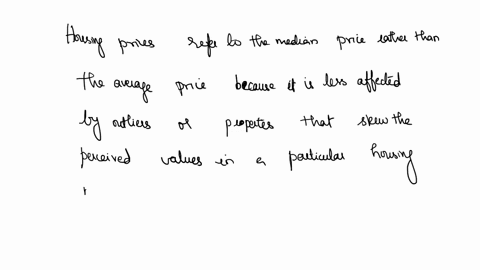 Housing prices refer to the median price rather than
the average price because it is less affected
by outliers or properties that skew the
perceived values in a particular housing